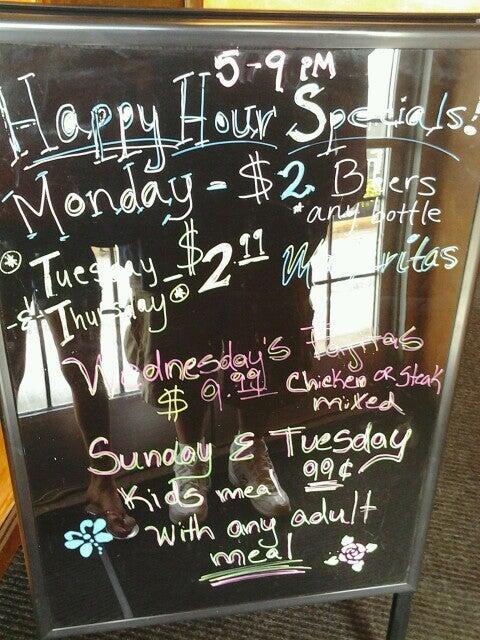 5-9 PM
Happy Hour Specials!
Monday - $2 Beers
*any bottle
* Tuesday - $2.99 Margaritas
& Thursday *
Wednesday's Fajitas
$9.99 Chicken or Steak
mixed
Sunday & Tuesday
99¢
Kids meal
With any adult
meal